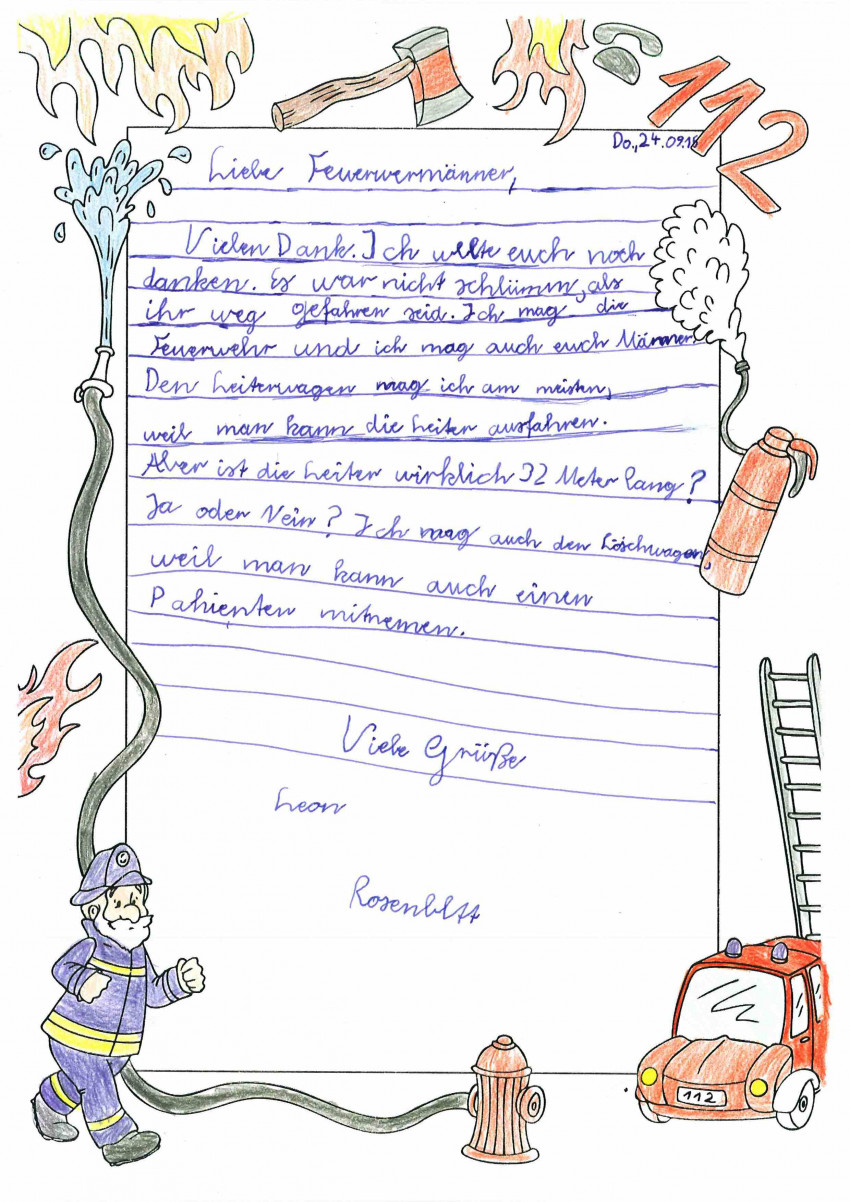 112
Do., 24.09.18
Liebe Feuerwermänner,
Vielen Dank. Ich wllte euch noch
danken. Es war nicht schlümm, als
ihr weg gefahren seid. Ich mag die
Feuerwehr und ich mag auch euch Männer
Den Leiterwagen mag ich am meisten,
weil man kann die Leiter ausfahren.
Aber ist die Leiter wirklich 32 Meter lang?
Ja oder Nein? Ich mag auch den Löschwagen,
weil man kann auch einen
Pahienten mitnemen.
Viele Grüße
Leon
Rosenbltt
112